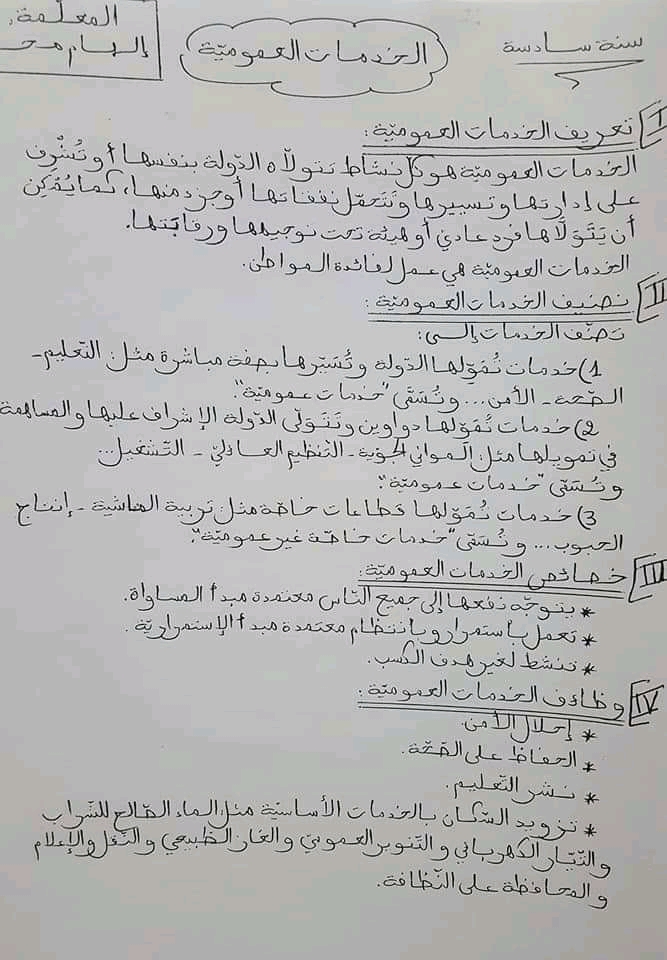 المعلمة:
إلهام محـ
سنة سادسة
الخدمات العموميّة
I تعريف الخدمات العموميّة:
الخدمات العموميّة هو كلّ نشاط تتولاّه الدّولة بنفسها أو تُشْرِف
على إدارتها وتسييرها وتتحمّل نفقاتها أو جزء منها، كما يُمْكِن
أن يَتَوَلّاها فرد عادي أو هيئة تحت توجيهها ورقابَتها.
الخدمات العموميّة هي عمل لفائدة المواطن.
II تصنيف الخدمات العموميّة:
تصنّف الخدمات إلى:
1) خدمات تُمَوّلها الدّولة وتُسَيّرها بصفة مباشرة مثل: التّعليم -
الصّحة - الأمن... وتُسَمّى "خدمات عموميّة".
2) خدمات تُمَوّلها دواوين وتَتَولّى الدّولة الإشراف عليها والمساهمة
في تمويلها مثل: المواني الجويّة - التّنظيم العائليّ - التّشغيل...
وتُسَمّى "خدمات عموميّة".
3) خدمات تُمَوّلها قطاعات خاصّة مثل: تربية الماشية - إنتاج
الحبوب... وتُسَمّى "خدمات خاصّة غير عموميّة".
III خصائص الخدمات العموميّة:
* يتوجّه نفعها إلى جميع النّاس معتمدة مبدأ المساواة.
* تعمل باستمرار وبانتظام معتمدة مبدأ الإستمراريّة.
* تنشط لغير هدف الكسب.
IV وظائف الخدمات العموميّة:
* إحلال الأمن.
* الحفاظ على الصّحّة.
* نشر التّعليم.
* تزويد السّكان بالخدمات الأساسيّة مثل: الماء الصّالح للشّراب
والتّيّار الكهربائي والتّنوير العمومي والغاز الطّبيعي والنّقل والإعلام
والمحافظة على النّظافة.